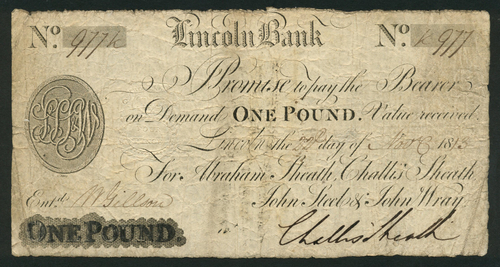 No. 977 Lincoln Bank No. 977
I Promise to pay the Bearer
on Demand ONE POUND. Value received
Lincoln the day of Novr 1813
For Abraham Sheath, Challis Sheath
John Steel & John Wray.
Entd.
ONE POUND.
Challis Sheath